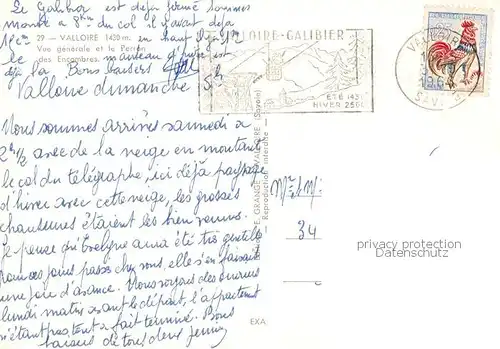 Le Galibier est déjà fermé sommes
monté à 8km du col il faisait déjà
29 - VALLOIRE 1430 m. en haut
Vue générale et le Perron
des Encombres.
là. Bons baisers
Valloire dimanche
VALLOIRE-GALIBIER
ÉTÉ 1430
HIVER 2500
VALLOIRE
SAVOIE
Nous sommes arrivés samedi à
2h1/2 avec de la neige en montant
le col du télégraphe, ici déjà paysage
d'hiver avec cette neige, les grosses
chaussures étaient les bien venues.
Je pense qu'Evelyne aura été très gentille
pour ses jours passés chez vous, elle s'en faisait
une joie d'avance. Nous voyons des ouvriers
lundi matin avant le départ, l'appartement
n'étant pas tout à fait terminé. Bons
baisers de tous deux
GRANGE, VALLOIRE (Savoie)
Reproduction interdite
EXA
Mr et Mme
34
privacy protection
Datenschutz